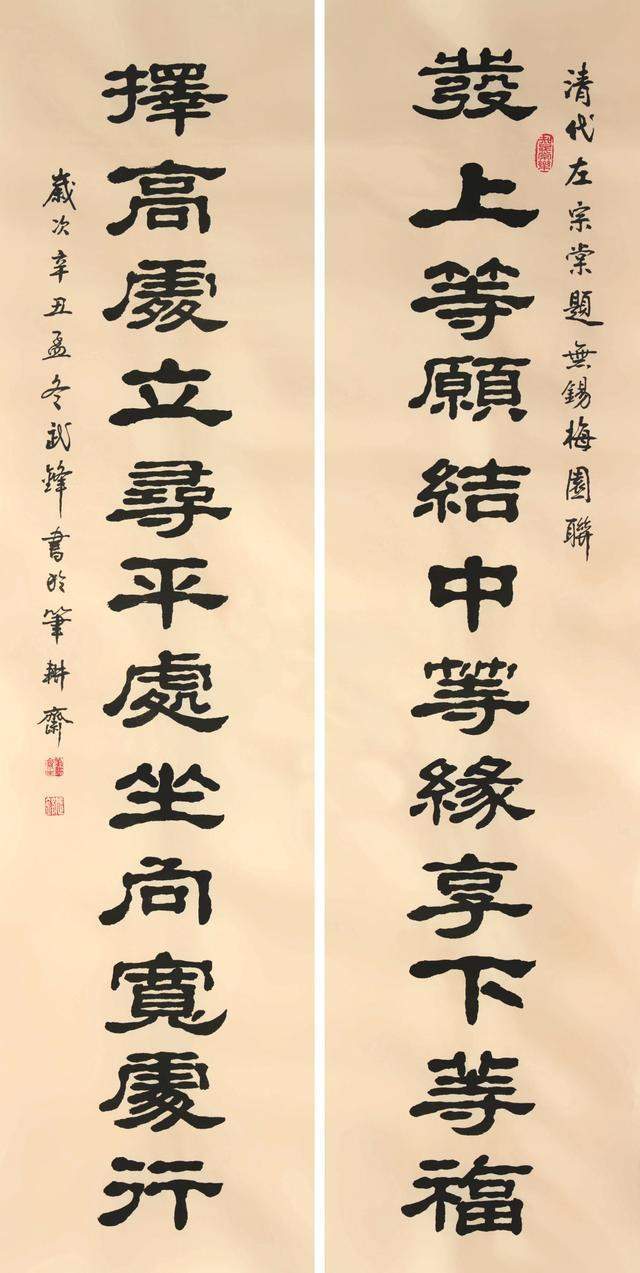 清代左宗棠題無錫梅園聯
發上等願結中等緣享下等福
擇高處立尋平處坐向寬處行
歲次辛丑孟冬武鋒書於筆耕齋